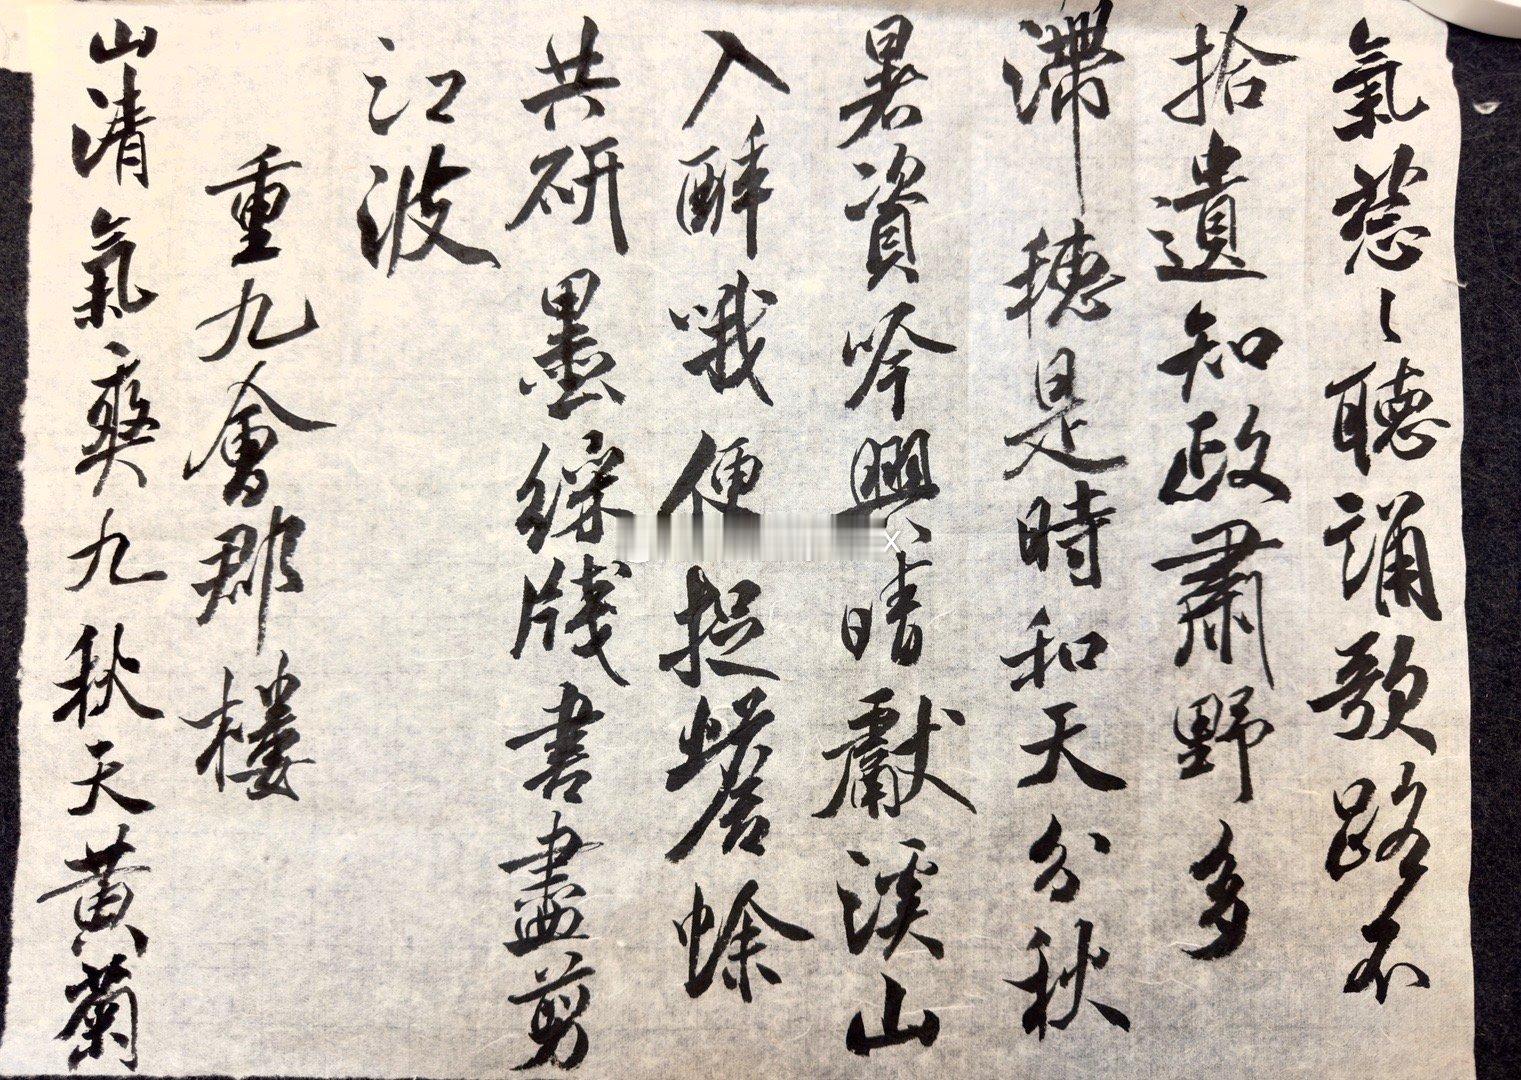 氣葱〻聽誦歌路不
拾遺知政肅野多
滯穗是時和天分秋
暑資吟興晴獻溪山
入醉哦便捉蟾蜍
共研墨綵牋書盡剪
江波
重九會郡樓
山清氣爽九秋天黃菊